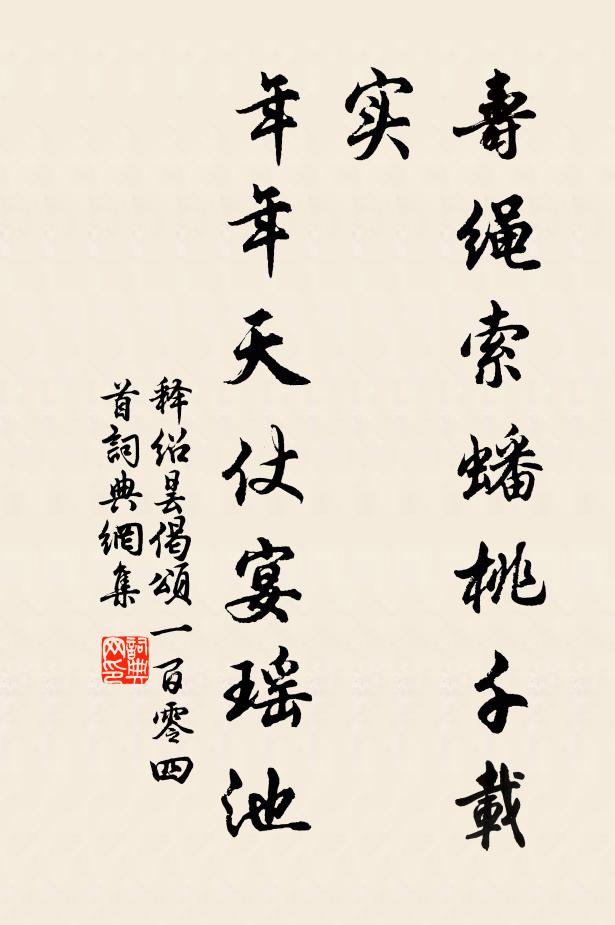 寿绳索蟠桃千载
实
年年天仗宴瑶池
释绍昙偈颂一百零四
首词典网集
词典网印